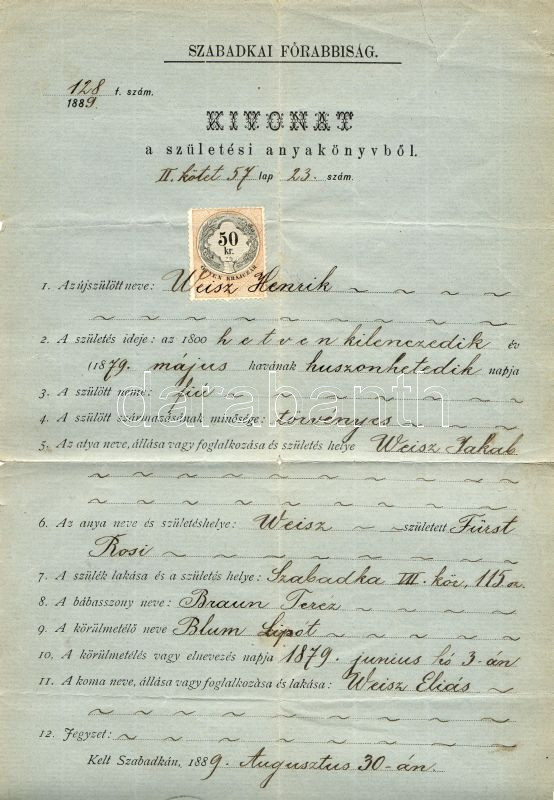 SZABADKAI FŐRABBISÁG.
128 f. szám.
1889.
KIVONAT
a születési anyakönyvből.
II. kötet 57 lap 23. szám.
50
kr.
ÖTVEN KRAJCZÁR
1. Az újszülött neve: Weisz Henrik
2. A születés ideje: az 1800 hetvenkilenczedik év
(1879. május havának huszonhetedik napja
3. A szülött neme: fiú
4. A szülött származásának minősége: törvényes
darabanth
5. Az atya neve, állása vagy foglalkozása és születés helye Weisz Jakab
6. Az anya neve és születéshelye: Weisz született Fürst
Rosi
7. A szülék lakása és a születés helye: Szabadka VIII. kör, 115 sz.
8. A bábasszony neve: Braun Teréz
9. A körülmetélő neve Blum Lipót
10. A körülmetélés vagy elnevezés napja 1879. junius hó 3-án
11. A koma neve, állása vagy foglalkozása és lakása: Weisz Eliás
12. Jegyzet:
Kelt Szabadkán, 1889. Augusztus 30-án.